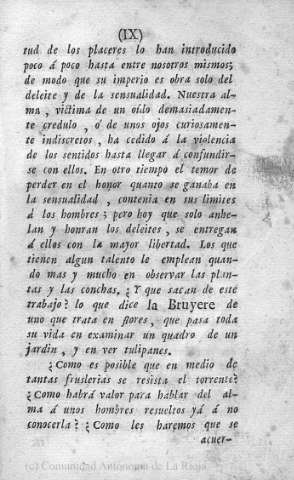 (IX)
tud de los placeres lo han introducido
poco á poco hasta entre nosotros mismos;
de modo que su imperio es obra solo del
deleite y de la sensualidad. Nuestra al-
ma, víctima de un oído demasiadamen-
te credulo, ó de unos ojos curiosamen-
te indiscretos, ha cedido á la violencia
de los sentidos hasta llegar á confundir-
se con ellos. En otro tiempo el temor de
perder en el honor quanto se ganaba en
la sensualidad, contenia en sus limites
á los hombres; pero hoy que solo anhe-
lan y honran los deleites, se entregan
á ellos con la mayor libertad. Los que
tienen algun talento le emplean quan-
do mas y mucho en observar las plan-
tas y las conchas. ¿Y que sacan de este
trabajo? lo que dice la Bruyere de
uno que trata en flores, que pasa toda
su vida en examinar un quadro de un
jardin, y en ver tulipanes.
¿Como es posible que en medio de
tantas fruslerias se resista el torrente?
¿Como habrá valor para hablar del al-
ma á unos hombres resueltos yá á no
conocerla? ¿Como les haremos que se
acuer-
(c) Comunidad Autónoma de La Rioja